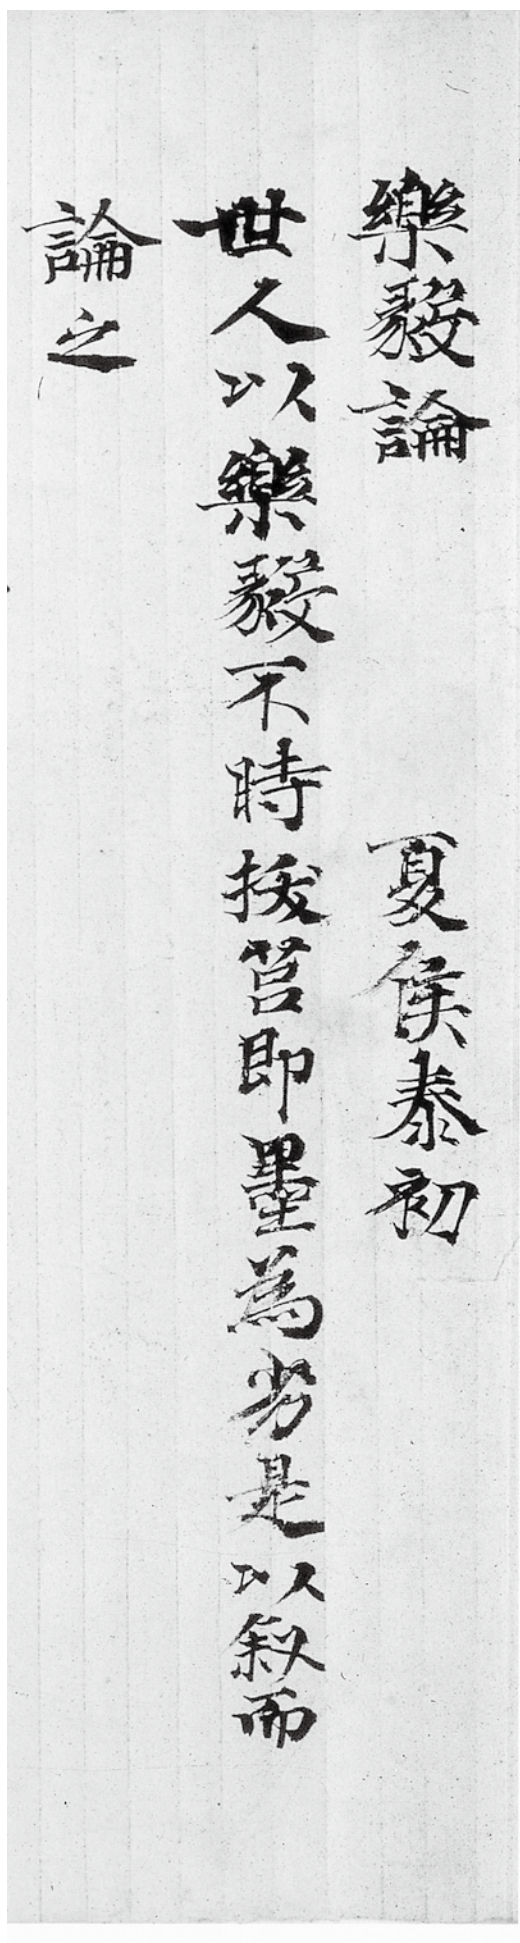 樂毅論 夏侯泰初
世人以樂毅不時拔莒即墨為劣是以叙而
論之